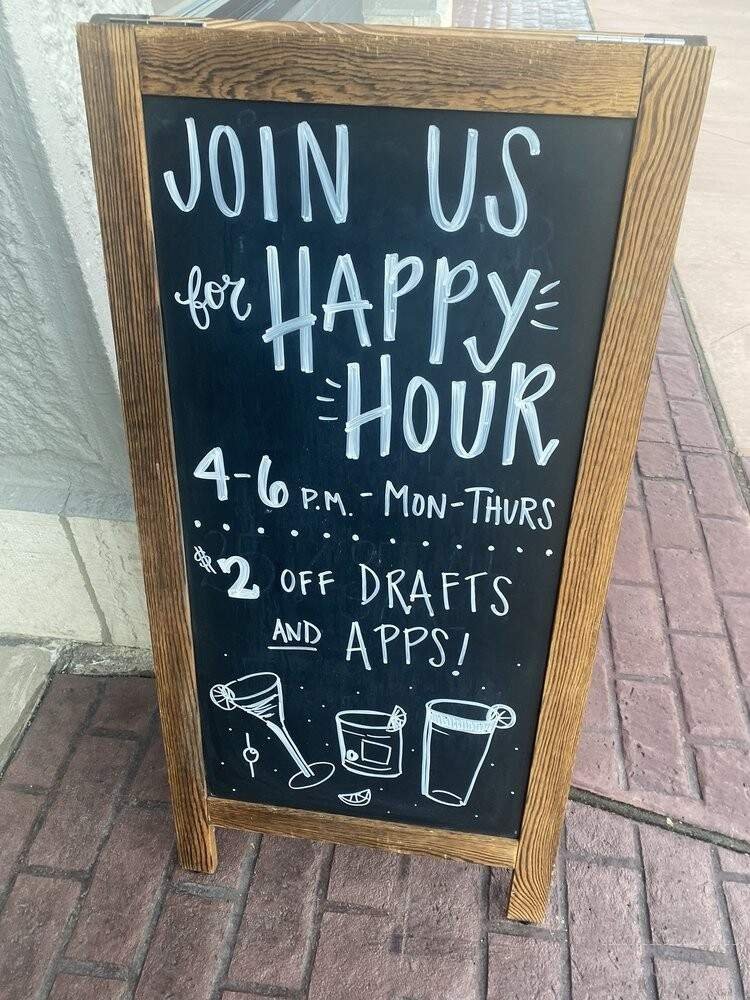 JOIN US
for HAPPY
HOUR
4-6 P.M. - MON-THURS
$2 OFF DRAFTS
AND APPS!